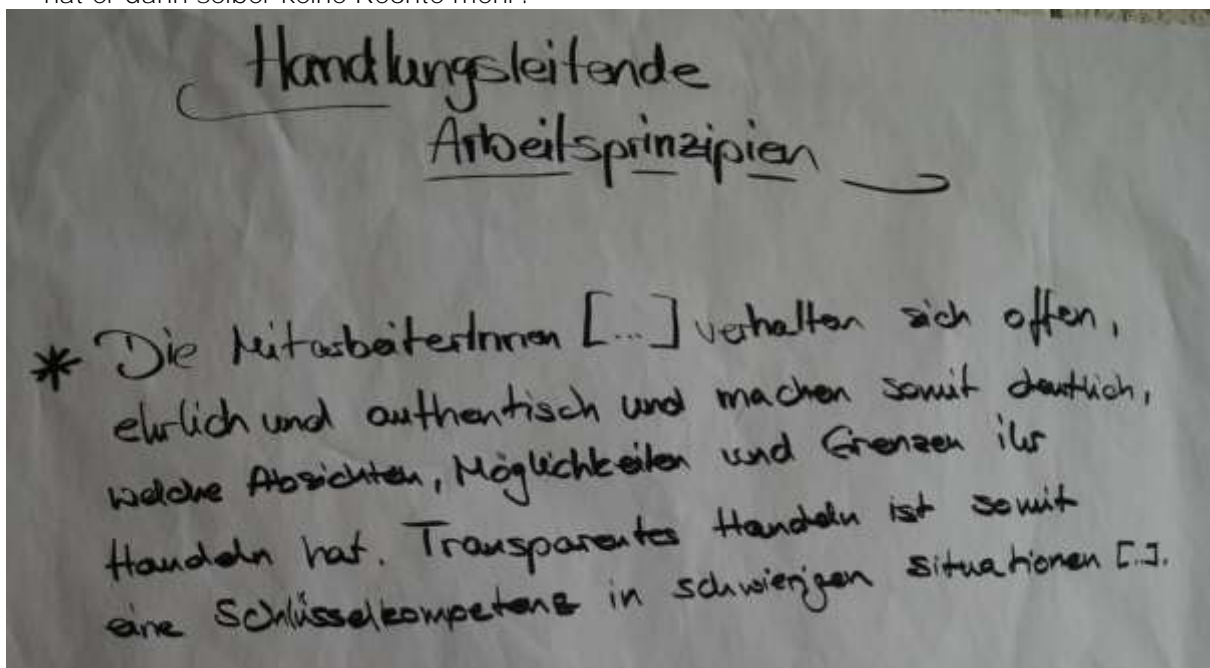 hat er dann selber keine Rechte mehr?
Handlungsleitende
Arbeitsprinzipien
* Die MitarbeiterInnen [...] verhalten sich offen,
ehrlich und authentisch und machen somit deutlich,
welche Absichten, Möglichkeiten und Grenzen ihr
Handeln hat. Transparentes Handeln ist somit
eine Schlüsselkompetenz in schwierigen Situationen [..].